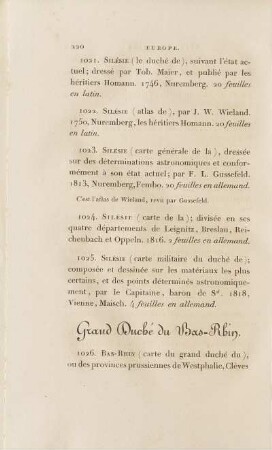 220 EUROPE.
1021. SILÉSIE (le duché de), suivant l'état ac-
tuel; dressé par Tob. Maier, et publié par les
héritiers Homann. 1746, Nuremberg. 20 feuilles
en latin.
1022. SILÉSIE (atlas de), par J. W. Wieland.
1750, Nuremberg, les héritiers Homann. 20 feuilles
en latin.
1023. SILÉSIE (carte générale de la), dressée
sur des déterminations astronomiques et confor-
mément à son état actuel; par F. L. Gussefeld.
1813, Nuremberg, Fembo. 20 feuilles en allemand.
C'est l'atlas de Wieland, revu par Gussefeld.
1024. SILÉSIE (carte de la); divisée en ses
quatre départements de Leignitz, Breslau, Rei-
chenbach et Oppeln. 1816. 2 feuilles en allemand.
1025. SILÉSIE (carte militaire du duché de);
composée et dessinée sur les matériaux les plus
certains, et des points déterminés astronomique-
ment, par le Capitaine, baron de St. 1818,
Vienne, Maisch. 4 feuilles en allemand.
Grand Duché du Bas-Rhin.
1026. BAS-RHIN (carte du grand duché du),
ou des provinces prussiennes de Westphalie, Clèves